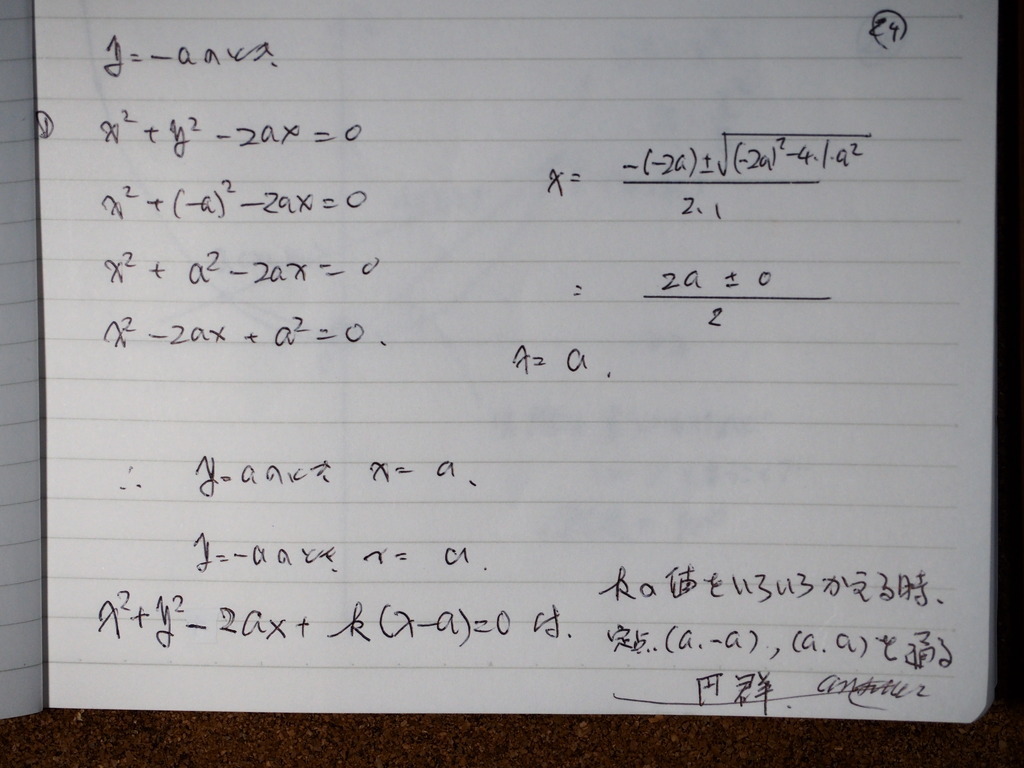 24
y=-aのとき
① x²+y²-2ax=0
x²+(-a)²-2ax=0
x²+a²-2ax=0
x²-2ax+a²=0.
x= (-(-2a)±√((-2a)²-4・1・a²))/(2・1)
= (2a±0)/2
x=a.
∴ y=aのとき x=a、
y=-aのとき x=a.
x²+y²-2ax+k(x-a)=0は.
kの値をいろいろかえる時、
定点.(a.-a),(a.a)を通る
円群.